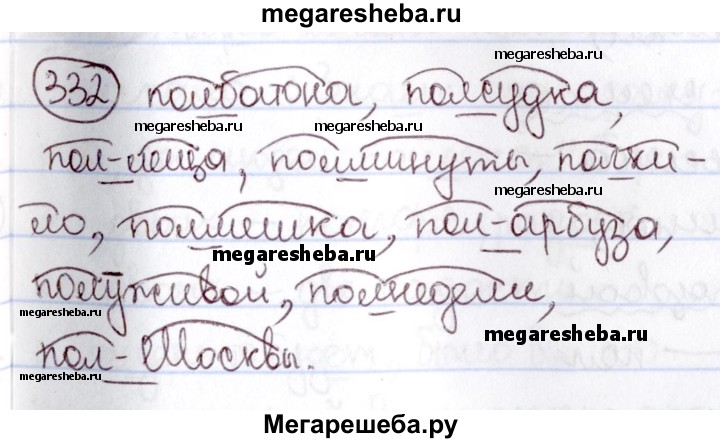 megaresheba.ru
megaresheba.ru
332 полбатона, полсудка,
megaresheba.ru megaresheba.ru
пол-лица, полминуты, полки-
megaresheba.ru
ло, полмешка, пол-арбуза,
megaresheba.ru
полуживой, полнедели,
megaresheba.ru
megaresheba.ru
пол-Москвы.
megaresheba.ru
Мегарешеба.ру